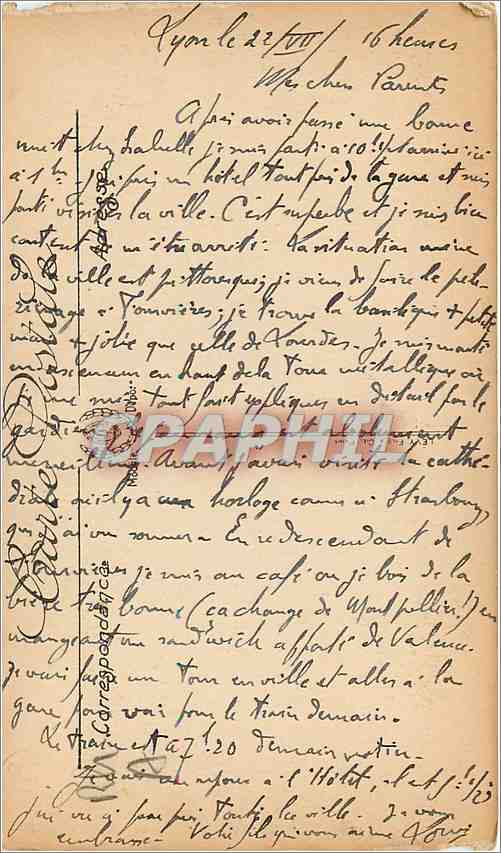 Lyon le 22/VII/ 16 heures
Mes chers Parents
Après avoir passé une bonne
nuit chez Isabelle je suis parti à 10h et arrivé ici
à 1h. J'ai pris un hôtel tout près de la gare et suis
parti visiter la ville. C'est superbe et je suis bien
content de m'être arrêté. La situation même
de la ville est pittoresque; je viens de faire le pèle-
rinage à Fourvières; je trouve la basilique + petite
mais + jolie que celle de Lourdes. Je suis monté
en ascenseur en haut de la Tour métallique où
je me suis tout fait expliquer en détail par le
gardien
merveilleux. Avant j'avais visité la cathé-
drale où il y a une horloge comme à Strasbourg
que j'ai vu sonner. En redescendant de
Fourvières je suis au café où je bois de la
bière très bonne (ça change de Montpellier!) en
mangeant un sandwich apporté de Valence.
Je vais faire un Tour en ville et aller à la
gare pour voir pour le train demain.
Le train est à 7h.20 demain matin.
à l'Hôtel, il est
j'ai vu à peu près toute la ville. Je vous
embrasse. Votre fils qui vous aime Louis
Carte Postale
Correspondance
Adresse
CPAPHIL